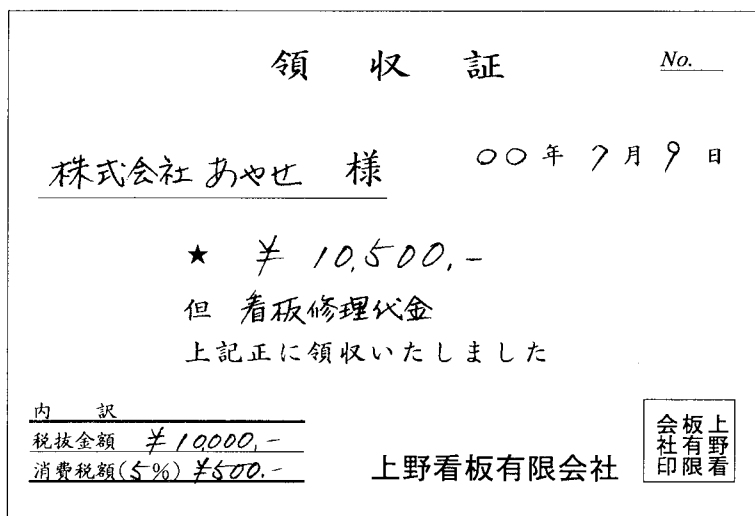 領収証 No.
株式会社 あやせ 様 〇〇年 7月 9日
★ ¥10,500.-
但 看板修理代金
上記正に領収いたしました
内 訳
税抜金額 ¥10,000.-
消費税額(5%) ¥500.-
上野看板有限会社
上野看
板有限
会社印